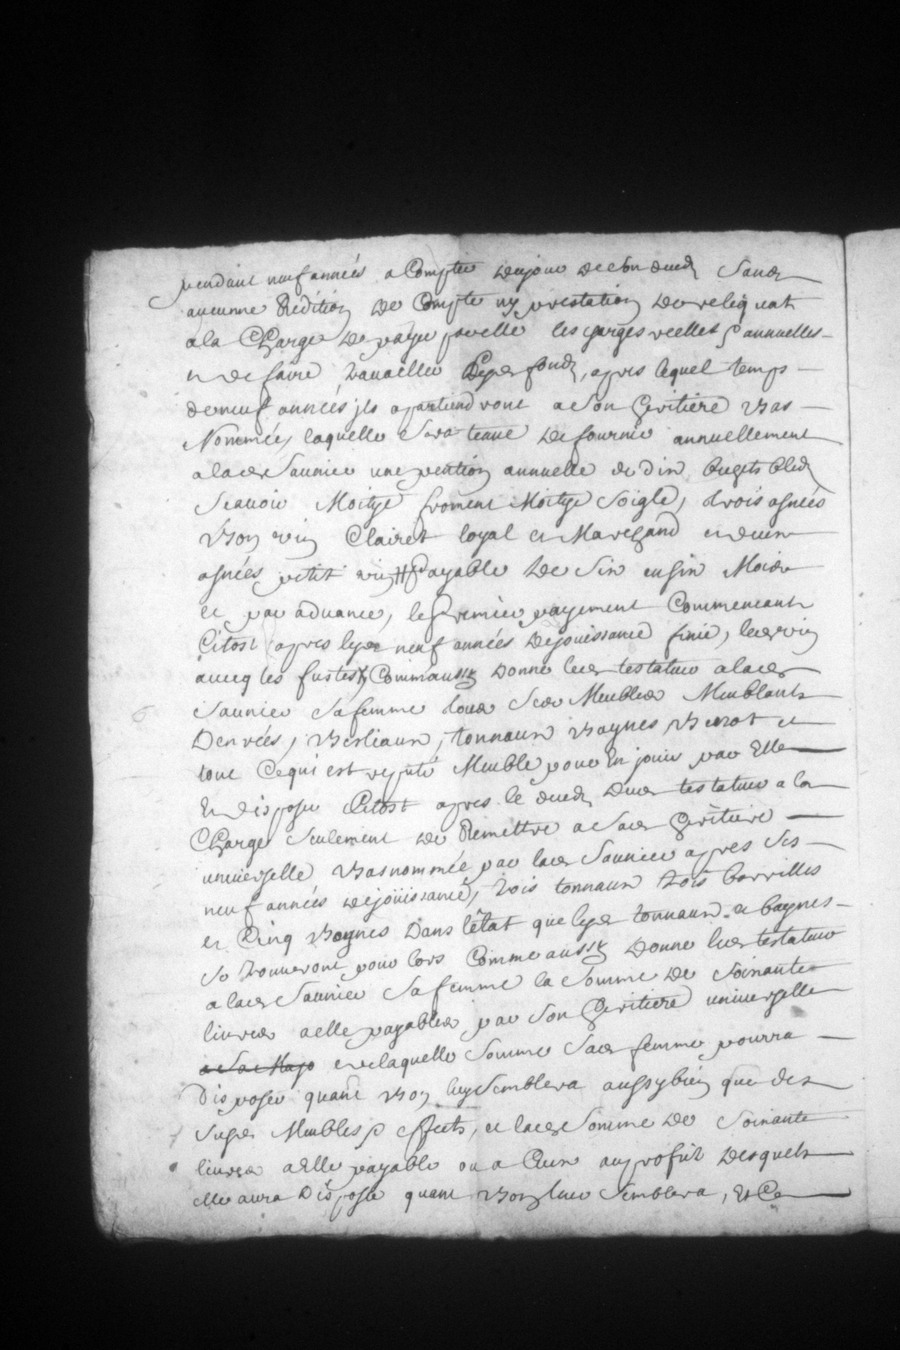 pendant neuf années a Compter du jour de son deced Sans
aucunne Rédition de Compte ny prestation de reliquat
a la Charge de payer par elle les charges reelles & annuelles
et de faire travailler lesd fonds, apres lequel temps
de neuf années ils apartiendront a son héritiere bas
Nommée, laquelle sera tenue de fournir annuellement
a lad Saunier une pention annuelle de dix bichets bled
scauoir Moitye froment Moitye soigle, trois asnées
bon vin Clairet loyal et Marchand et deux
asnées petit vin payable de six en six Mois
et par aduance, le premier payement Commencant
Citost apres lesd neuf années de jouissance finie, led vin
aueq les fustes, Comm'aussy donne led testateur a lad
Saunier sa femme tous ses Meubles Meublants
Denrées, bestiaux, tonnaux bagnes benot et
tout Ce qui est reputé Meuble pour en jouir par Elle
et disposer Citost apres le deced dud testateur a la
Charge seulement de Remettre a sad héritiere
uniuerselle bas nommée par lad Saunier apres ses
neuf années de joüissance, trois tonnaux trois barrilles
et Cinq bagnes dans l'état que lesd tonnaux et bagnes
se trouueront pour lors Comme aussy donne led testateur
a lad Saunier sa femme la somme de soixante
liures a elle payables par son héritiere uniuerselle
de laquelle somme sad femme pourra
disposer quant bon luy semblera aussy bien que des
susd Meubles & effects, et lad somme de soixante
liures a Elle payable ou a Ceux au profit desquels
elle aura disposé quant bon luy semblera, Et Ce